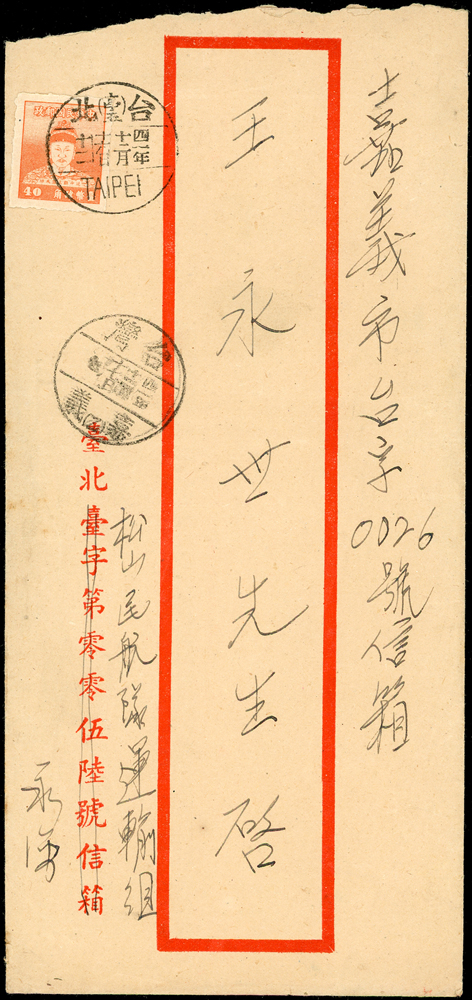 嘉義市台字0026號信箱
王永世先生啓
松山民航隊運輸組
臺北臺字第零零伍陸號信箱
永
北(臺)台
四一年
十二月
TAIPEI
台灣
嘉義
(2)
40